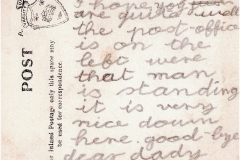 I hope you
are quite well
the post-office
is on the
left were
that man
is standing
it is very
nice down
here. good-bye
dear dady
POST
Inland Postage only this space may
be used for correspondence.